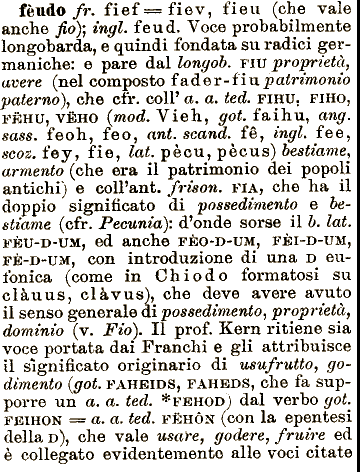 fèudo fr. fief = fiev, fieu (che vale
anche fio); ingl. feud. Voce probabilmente
longobarda, e quindi fondata su radici ger-
maniche: e pare dal longob. FIU proprietà,
avere (nel composto fader-fiu patrimonio
paterno), che cfr. coll' a. a. ted. FIHU, FIHO,
FËHU, VËHO (mod. Vieh, got. faihu, ang.
sass. feoh, feo, ant. scand. fê, ingl. fee,
scoz. fey, fie, lat. pècu, pècus) bestiame,
armento (che era il patrimonio dei popoli
antichi) e coll'ant. frison. FIA, che ha il
doppio significato di possedimento e be-
stiame (cfr. Pecunia): d'onde sorse il b. lat.
FÈU-D-UM, ed anche FÈO-D-UM, FÈI-D-UM,
FÈ-D-UM, con introduzione di una D eu-
fonica (come in Chiodo formatosi su
clàuus, clàvus), che deve avere avuto
il senso generale di possedimento, proprietà,
dominio (v. Fio). Il prof. Kern ritiene sia
voce portata dai Franchi e gli attribuisce
il significato originario di usufrutto, go-
dimento (got. FAHEIDS, FAHEDS, che fa sup-
porre un a. a. ted. *FEHOD) dal verbo got.
FEIHON = a. a. ted. FËHÔN (con la epentesi
della D), che vale usare, godere, fruire ed
è collegato evidentemente alle voci citate